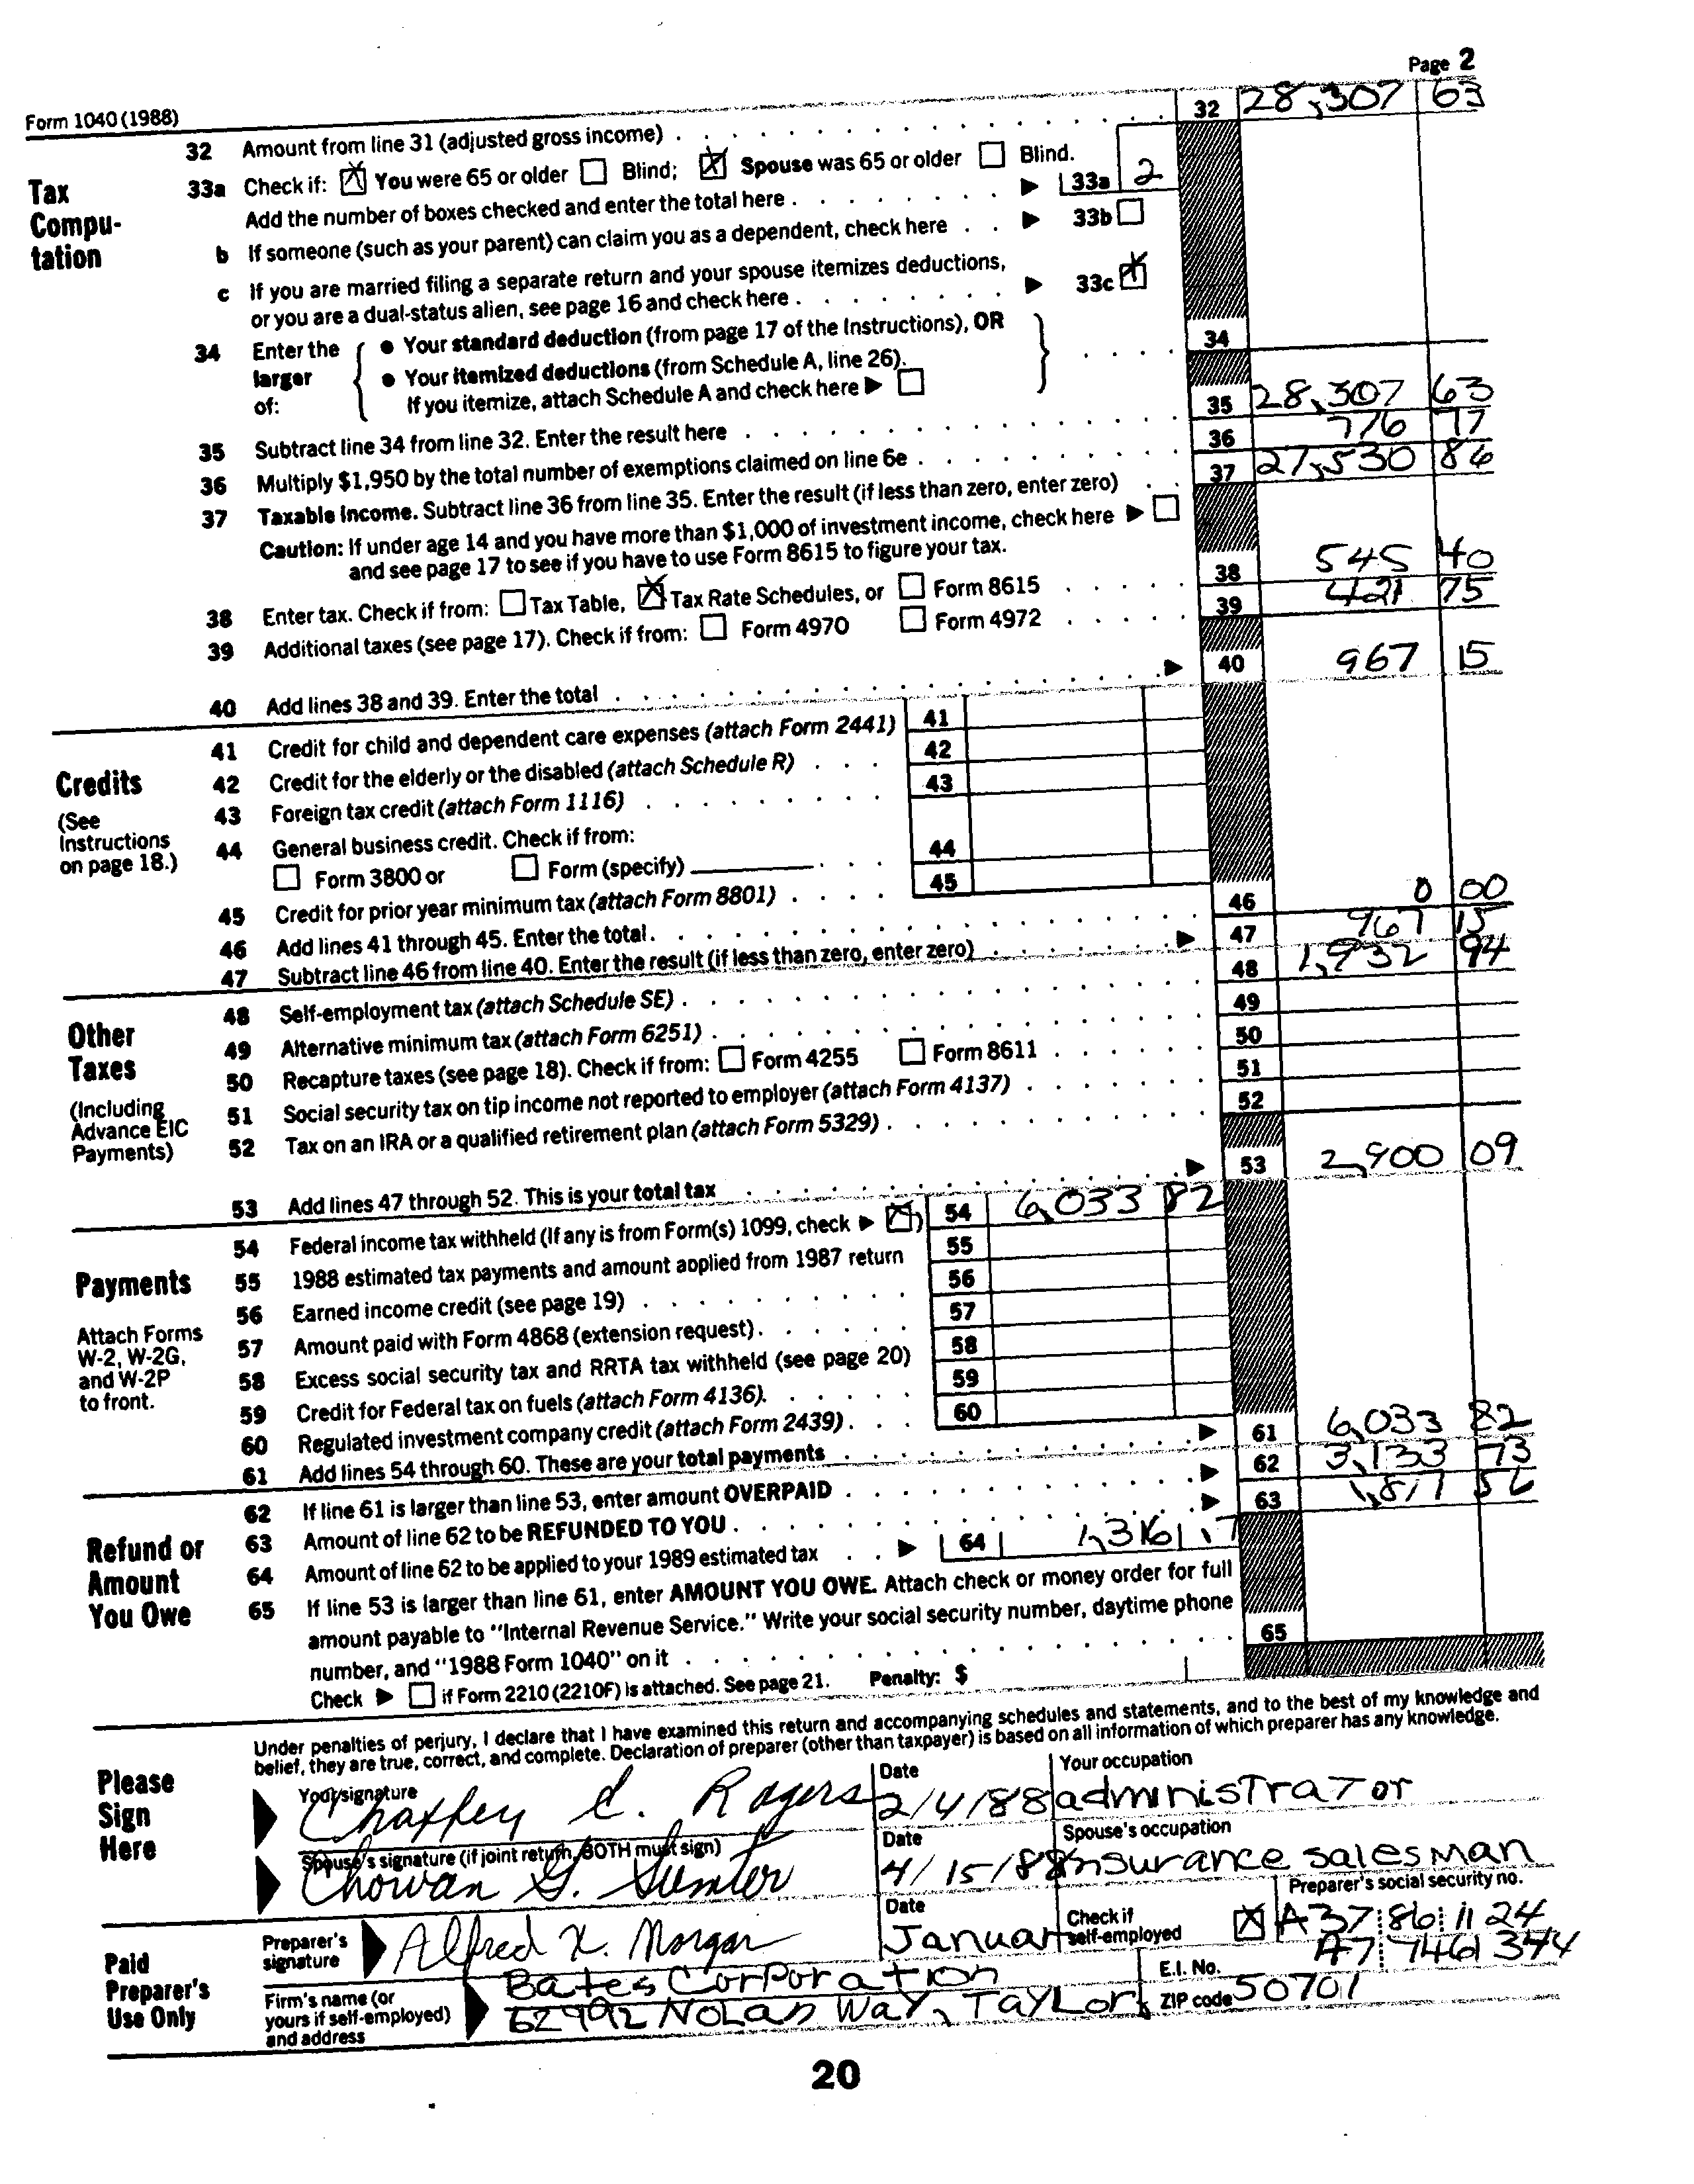 Page 2
Form 1040 (1988)
32 Amount from line 31 (adjusted gross income) 32 28,307 63
Tax Compu- tation
33a Check if: [X] You were 65 or older [ ] Blind; [X] Spouse was 65 or older [ ] Blind.
Add the number of boxes checked and enter the total here ▶ 33a 2
b If someone (such as your parent) can claim you as a dependent, check here ▶ 33b [ ]
c If you are married filing a separate return and your spouse itemizes deductions,
or you are a dual-status alien, see page 16 and check here ▶ 33c [X]
34 Enter the larger of: { ● Your standard deduction (from page 17 of the Instructions), OR } 34
● Your itemized deductions (from Schedule A, line 26).
If you itemize, attach Schedule A and check here ▶ [ ]
35 Subtract line 34 from line 32. Enter the result here 35 28,307 63
36 Multiply $1,950 by the total number of exemptions claimed on line 6e 36 776 77
37 Taxable income. Subtract line 36 from line 35. Enter the result (if less than zero, enter zero) 37 27,530 86
Caution: If under age 14 and you have more than $1,000 of investment income, check here ▶ [ ]
and see page 17 to see if you have to use Form 8615 to figure your tax.
38 Enter tax. Check if from: [ ] Tax Table, [X] Tax Rate Schedules, or [ ] Form 8615 38 545 40
39 Additional taxes (see page 17). Check if from: [ ] Form 4970 [ ] Form 4972 39 421 75
40 Add lines 38 and 39. Enter the total ▶ 40 967 15
Credits
(See Instructions on page 18.)
41 Credit for child and dependent care expenses (attach Form 2441) 41
42 Credit for the elderly or the disabled (attach Schedule R) 42
43 Foreign tax credit (attach Form 1116) 43
44 General business credit. Check if from:
[ ] Form 3800 or [ ] Form (specify) 44
45 Credit for prior year minimum tax (attach Form 8801) 45
46 Add lines 41 through 45. Enter the total 46 0 00
47 Subtract line 46 from line 40. Enter the result (if less than zero, enter zero) ▶ 47 967 15
Other Taxes
(Including Advance EIC Payments)
48 Self-employment tax (attach Schedule SE) 48 1,932 94
49 Alternative minimum tax (attach Form 6251) 49
50 Recapture taxes (see page 18). Check if from: [ ] Form 4255 [ ] Form 8611 50
51 Social security tax on tip income not reported to employer (attach Form 4137) 51
52 Tax on an IRA or a qualified retirement plan (attach Form 5329) 52
53 Add lines 47 through 52. This is your total tax ▶ 53 2,900 09
Payments
Attach Forms W-2, W-2G, and W-2P to front.
54 Federal income tax withheld (If any is from Form(s) 1099, check ▶ [X]) 54 6,033 82
55 1988 estimated tax payments and amount applied from 1987 return 55
56 Earned income credit (see page 19) 56
57 Amount paid with Form 4868 (extension request) 57
58 Excess social security tax and RRTA tax withheld (see page 20) 58
59 Credit for Federal tax on fuels (attach Form 4136). 59
60 Regulated investment company credit (attach Form 2439) 60
61 Add lines 54 through 60. These are your total payments ▶ 61 6,033 82
Refund or Amount You Owe
62 If line 61 is larger than line 53, enter amount OVERPAID ▶ 62 3,133 73
63 Amount of line 62 to be REFUNDED TO YOU ▶ 63 1,817 56
64 Amount of line 62 to be applied to your 1989 estimated tax ▶ 64 1,316 17
65 If line 53 is larger than line 61, enter AMOUNT YOU OWE. Attach check or money order for full
amount payable to "Internal Revenue Service." Write your social security number, daytime phone
number, and "1988 Form 1040" on it 65
Check ▶ [ ] if Form 2210 (2210F) is attached. See page 21. Penalty: $
Please Sign Here
Under penalties of perjury, I declare that I have examined this return and accompanying schedules and statements, and to the best of my knowledge and
belief, they are true, correct, and complete. Declaration of preparer (other than taxpayer) is based on all information of which preparer has any knowledge.
Your signature Date Your occupation
Chaffey C. Rogers 2/4/88 administrator
Spouse's signature (if joint return, BOTH must sign) Date Spouse's occupation
Chowan G. Sumter 4/15/88 insurance salesman
Paid Preparer's Use Only
Preparer's signature Date Check if self-employed Preparer's social security no.
Alfred X. Morgan Januar [X] A37 86 1124
Firm's name (or yours if self-employed) and address E.I. No. A7 7461344
Bates Corporation
62992 Nolan Way, Taylor, ZIP code 50701
20